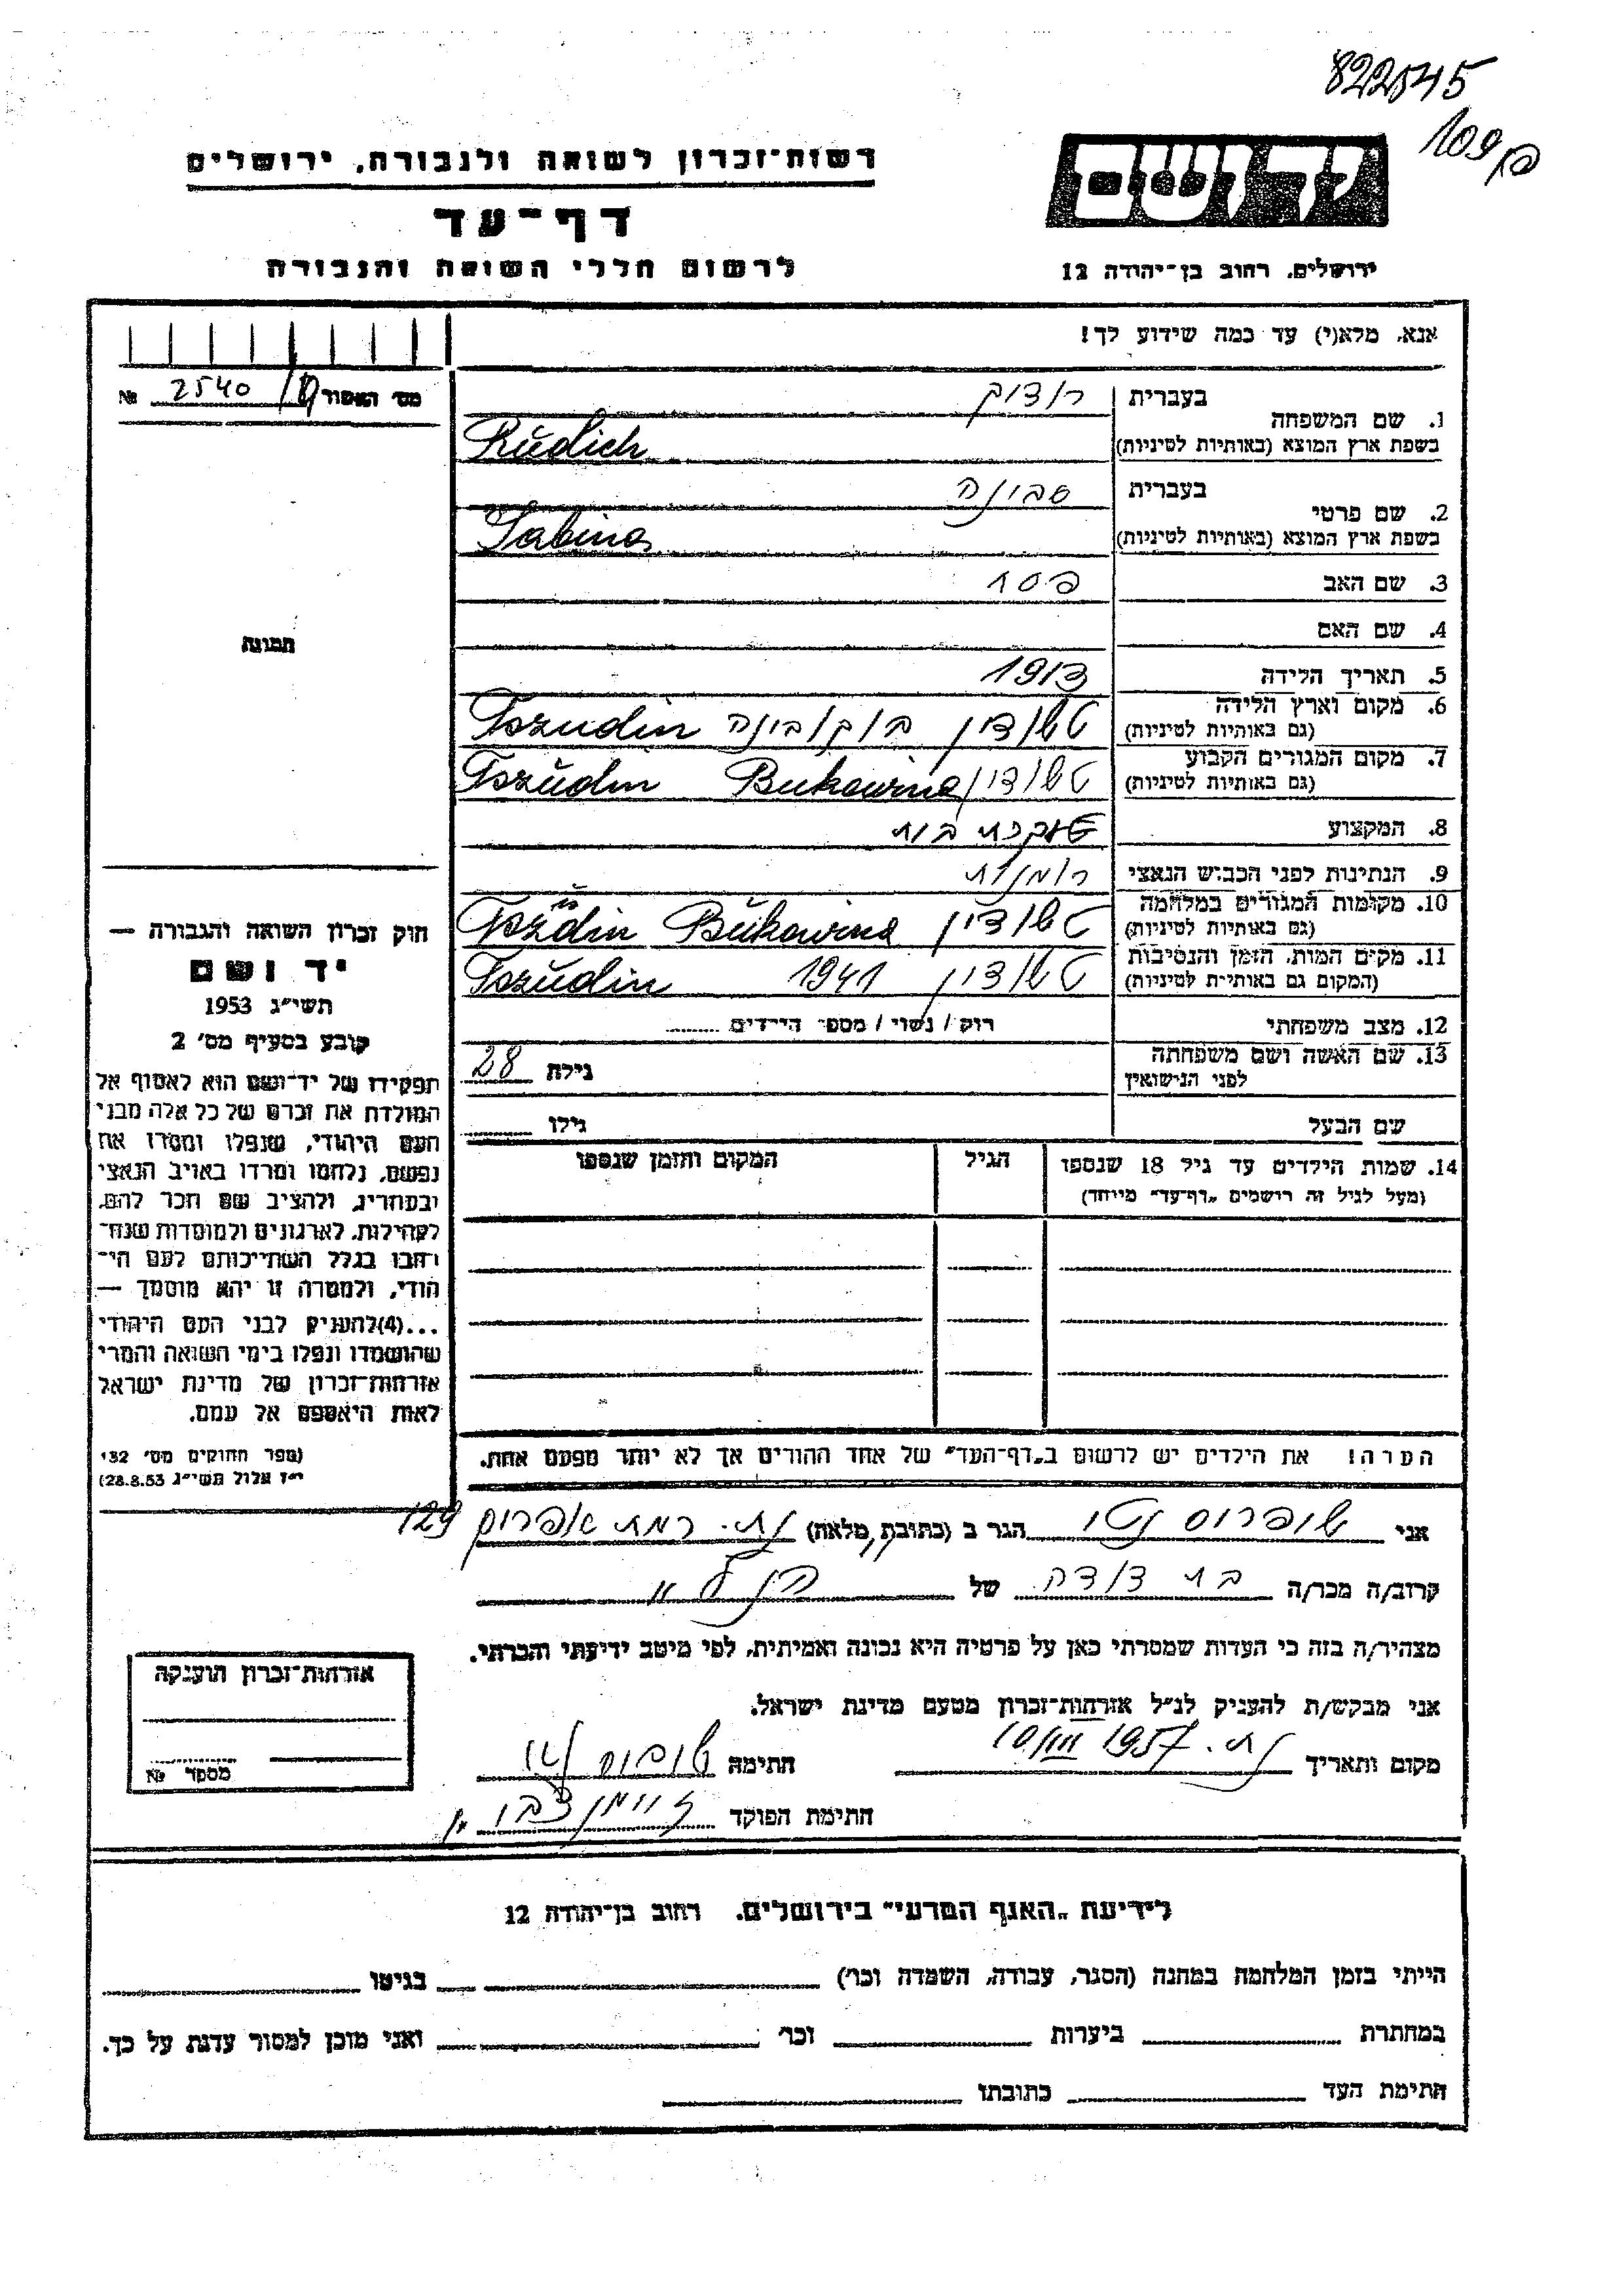 822545
109
יד ושם
רשות-זכרון לשואה ולגבורה, ירושלים
דף-עד
לרשום חללי השואה והגבורה
ירושלים, רחוב בן-יהודה 12
אנא, מלא(י) עד כמה שידוע לך!
מס' האסור 2540 №
בעברית
1. שם המשפחה
בשפת ארץ המוצא (באותיות לטיניות) Rŭdich
בעברית סבינה
2. שם פרטי
בשפת ארץ המוצא (באותיות לטיניות) Sabina
3. שם האב
4. שם האם
תמונה
5. תאריך הלידה 1913
6. מקום וארץ הלידה
(גם באותיות לטיניות) טשודין בוקובינה Tszudin
7. מקום המגורים הקבוע
(גם באותיות לטיניות) טשודין Bukowina Tszŭdin
8. המקצוע עקרת בית
9. הנתינות לפני הכבוש הנאצי רומנית
10. מקומות המגורים במלחמה
(גם באותיות לטיניות) טשודין Bŭkowina
11. מקום המות, הזמן והנסיבות
(המקום גם באותיות לטיניות) טשודין 1941 Tszŭdin
12. מצב משפחתי רוק / נשוי / מספר הילדים
13. שם האשה ושם משפחתה
לפני הנישואין גילה 28
שם הבעל גילו
14. שמות הילדים עד גיל 18 שנספו
(מעל לגיל זה רושמים "דף-עד" מיוחד)
הגיל
המקום והזמן שנספו
חוק זכרון השואה והגבורה —
יד ושם
תשי"ג 1953
קובע בסעיף מס' 2
תפקידו של יד-ושם הוא לאסוף אל
המולדת את זכרם של כל אלה מבני
העם היהודי, שנפלו ומסרו את
נפשם, נלחמו ומרדו באויב הנאצי
ובעוזריו, ולהציב שם וזכר להם,
לקהילות, לארגונים ולמוסדות שנח-
רבו בגלל השתייכותם לעם הי-
הודי, ולמטרה זו יהא מוסמך —
...(4) להעניק לבני העם היהודי
שהושמדו ונפלו בימי השואה והמרי
אזרחות-זכרון של מדינת ישראל
לאות היאספם אל עמם.
(ספר החוקים מס' 132
י"ז אלול תשי"ג 28.8.53)
הערה! את הילדים יש לרשום ב"דף-העד" של אחד ההורים אך לא יותר מפעם אחת.
אני הגר ב (כתובת מלאה) נת. רמת אפרים 129
קרוב/ה מכר/ה בת דודה של הנ"ל
מצהיר/ה בזה כי העדות שמסרתי כאן על פרטיה היא נכונה ואמיתית, לפי מיטב ידיעתי והכרתי.
אני מבקש/ת להעניק לנ"ל אזרחות-זכרון מטעם מדינת ישראל.
מקום ותאריך נת. 10/III 1957 חתימה
חתימת הפוקד
אזרחות-זכרון הוענקה
מספר №
לידיעת "האגף המדעי" בירושלים, רחוב בן-יהודה 12
הייתי בזמן המלחמה במחנה (הסגר, עבודה, השמדה וכו') בגיטו
במחתרת ביערות וכו' ואני מוכן למסור עדות על כך.
חתימת העד כתובתו